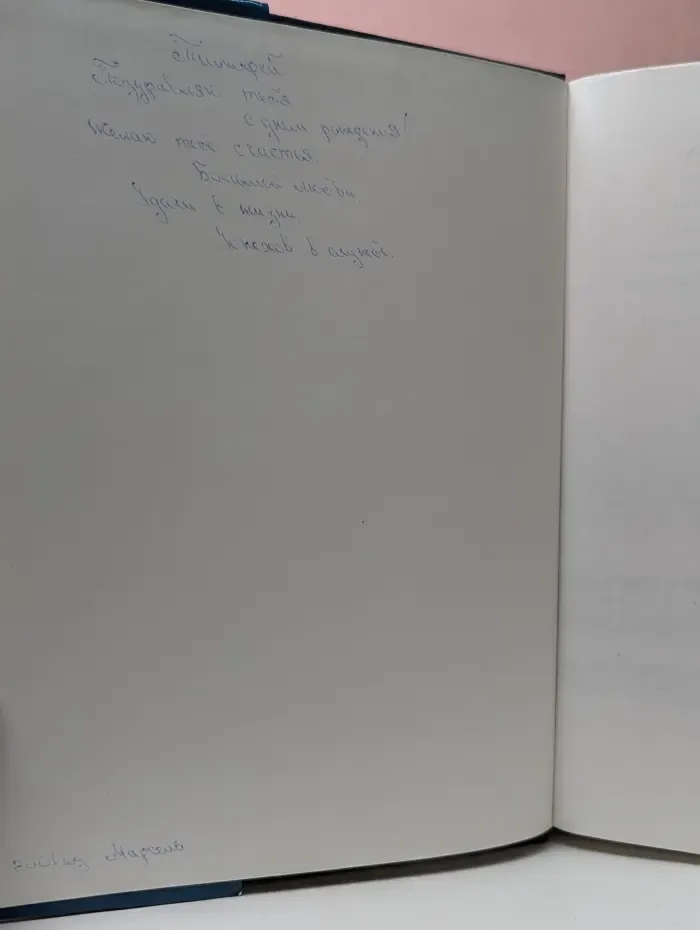 Тимофей
Поздравляю тебя
с днем рождения!
Желаю тебе счастья.
Большой любви.
Удачи в жизни.
Успехов в службе.
Марсель